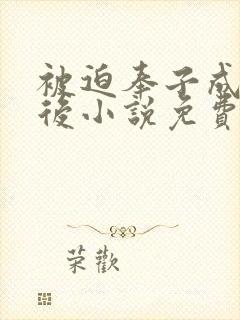 被迫奉子成
後小說免費
荣歡